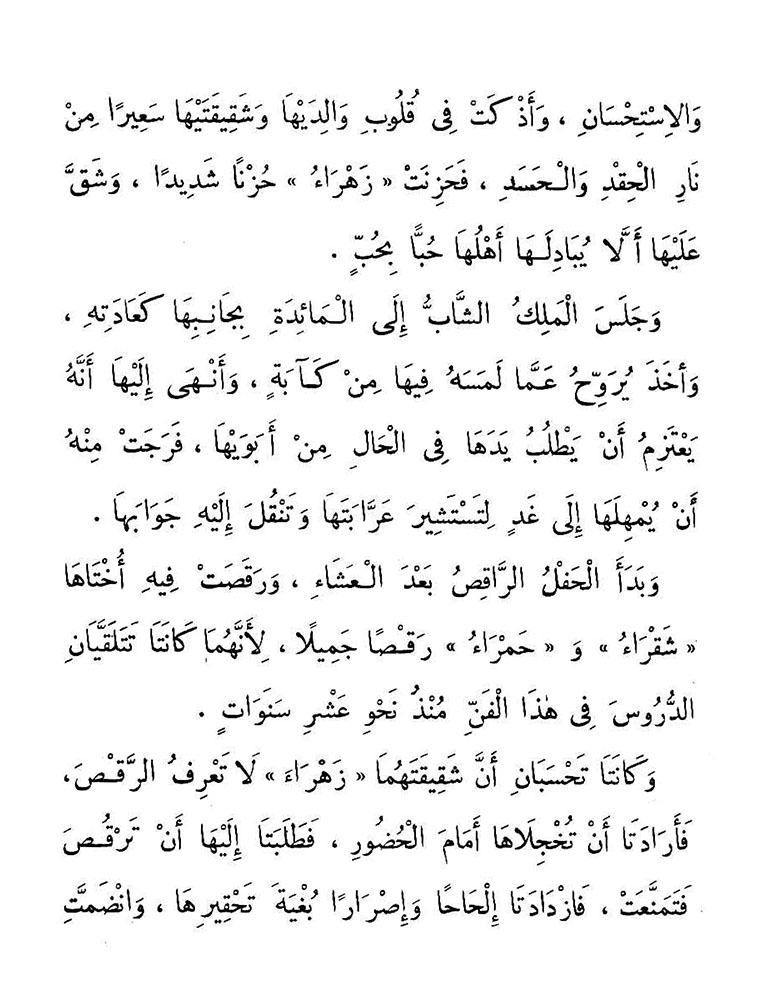 وَالاِسْتِحْسَانِ ، وَأَذْكَتْ فِى قُلُوبِ وَالِدَيْهَا وَشَقِيقَتَيْهَا سَعِيرًا مِنْ
نَارِ الْحِقْدِ وَالْحَسَدِ ، فَحَزِنَتْ « زَهْرَاءُ » حُزْنًا شَدِيدًا ، وَشَقَّ
عَلَيْهَا أَلَّا يُبَادِلَهَا أَهْلُهَا حُبًّا بِحُبٍّ .
وَجَلَسَ الْمَلِكُ الشَّابُّ إِلَى الْمَائِدَةِ بِجَانِبِهَا كَعَادَتِهِ ،
وَأَخَذَ يُرَوِّحُ عَمَّا لَمَسَهُ فِيهَا مِنْ كَآبَةٍ ، وَأَنْهَى إِلَيْهَا أَنَّهُ
يَعْتَزِمُ أَنْ يَطْلُبُ يَدَهَا فِى الْحَالِ مِنْ أَبَوَيْهَا ، فَرَجَتْ مِنْهُ
أَنْ يُمْهِلَهَا إِلَى غَدٍ لِتَسْتَشِيرَ عَرَّابَتَهَا وَتَنْقُلَ إِلَيْهِ جَوَابَهَا .
وَبَدَأَ الْحَفْلُ الرَّاقِصُ بَعْدَ الْعَشَاءِ ، وَرَقَصَتْ فِيهِ أُخْتَاهَا
« شَقْرَاءُ » وَ « حَمْرَاءُ » رَقْصًا جَمِيلًا ، لِأَنَّهُمَا كَانَتَا تَتَلَقَّيَانِ
الدُّرُوسَ فِى هٰذَا الْفَنِّ مُنْذُ نَحْوِ عَشْرِ سَنَوَاتٍ .
وَكَانَتَا تَحْسَبَانِ أَنَّ شَقِيقَتَهُمَا « زَهْرَاءَ » لَا تَعْرِفُ الرَّقْصَ،
فَأَرَادَتَا أَنْ تُخْجِلَاهَا أَمَامَ الْحُضُورِ ، فَطَلَبَتَا إِلَيْهَا أَنْ تَرْقُصَ
فَتَمَنَّعَتْ ، فَازْدَادَتَا إِلْحَاحًا وَإِصْرَارًا بُغْيَةَ تَحْقِيرِهَا ، وَانْضَمَّتِ